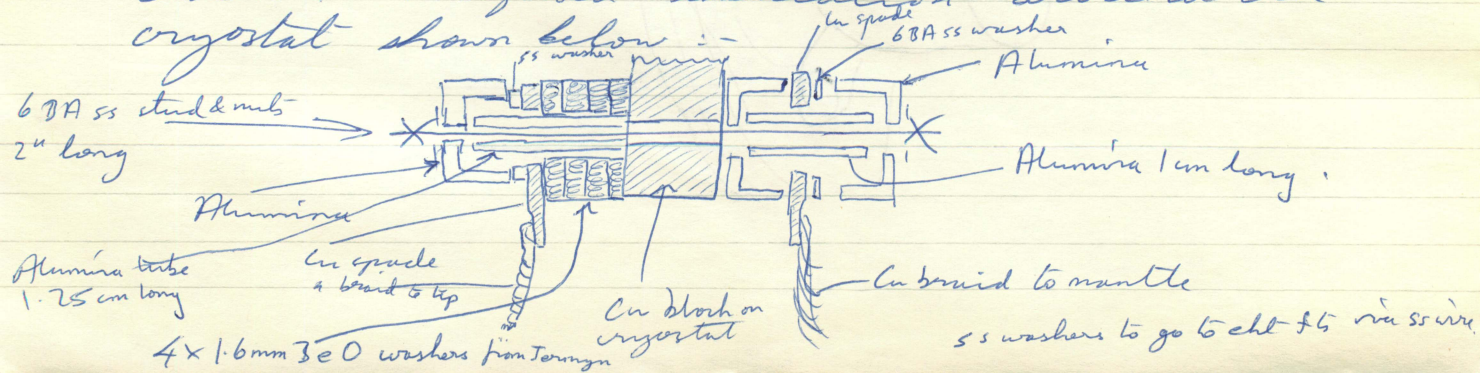 cryostat shown below :-
Cu spade
6BA ss washer
ss washer
Alumina
6 BA ss stud & nuts
2" long
Alumina 1cm long.
Alumina
Alumina tube
1.25 cm long
Cu spade
& braid to tip
Cu block on
cryostat
Cu braid to mantle
4 x 1.6mm BeO washers from Jermyn
ss washers to go to eht f ts via ss wire.